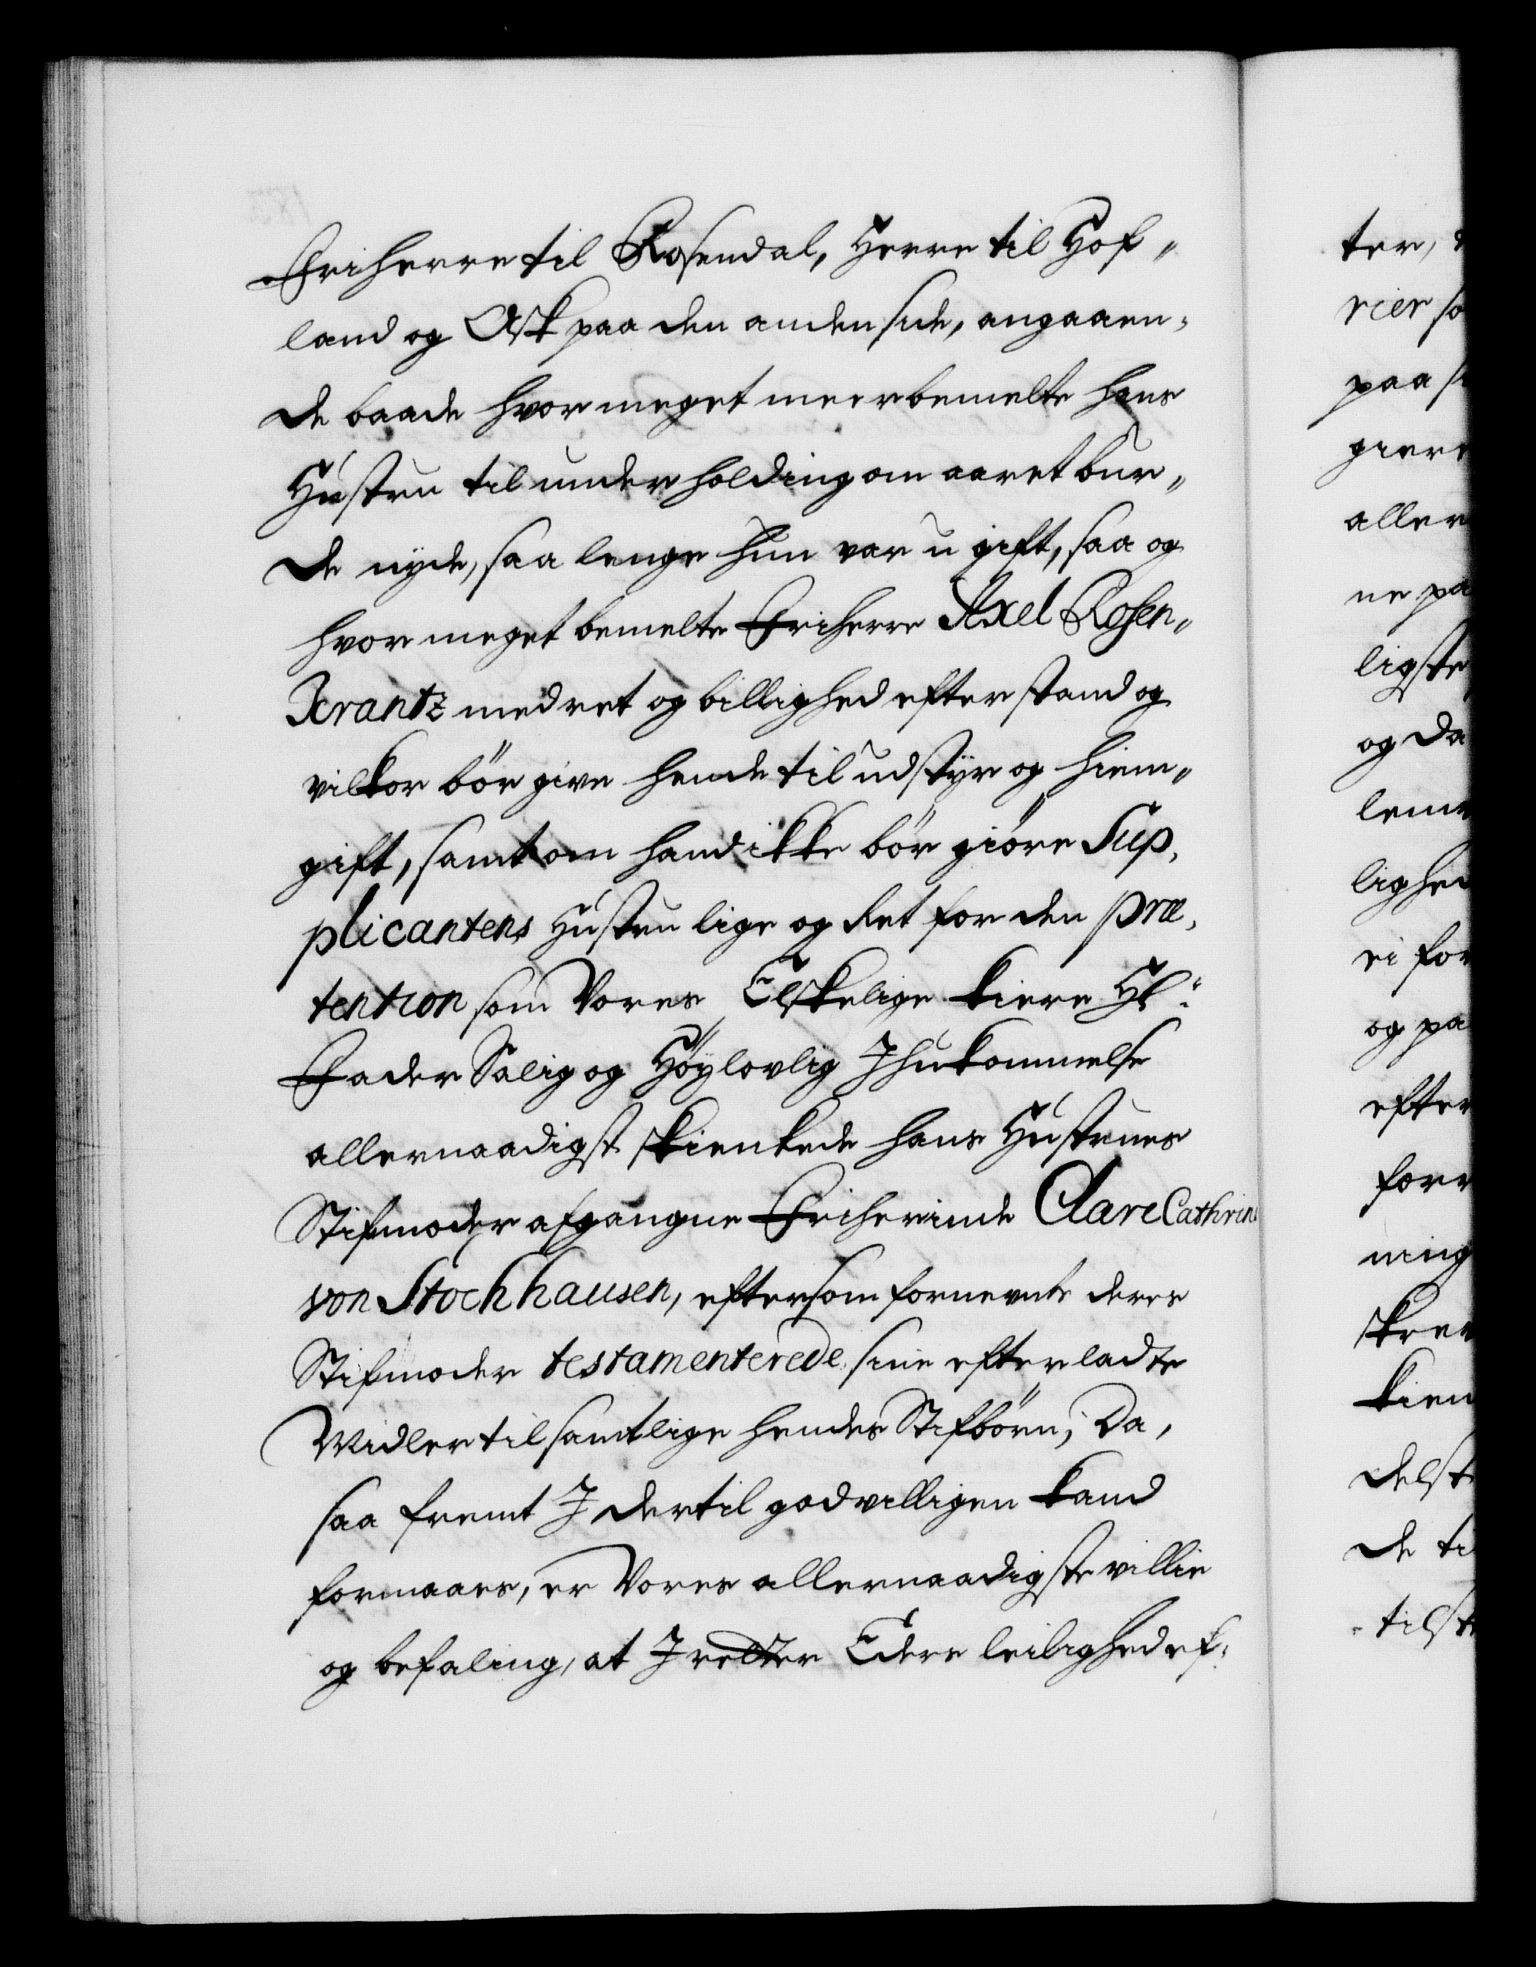 Friherre til Rosendal, Herre til Hof„
land og Ask paa den anden side, angaaen„
de baade hvor meget meerbemelte hans
Hustru til underholding om aaret bur„
de nyde, saa lenge hun var u gift, saa og
hvor meget bemelte Friherre Axel Rosen„
Krantz med ret og billighed efter stand og
vilkor bør give hende til udstyr og hiem„
gift, samt om hand ikke bør giøre Sup„
plicantens Hustru lige og Ret for den præ„
tention som Vores Elskelige kiere Hl:
Fader Salig og Høylovlig Ihukommelse
allernaadigst skienkede hans Hustrues
Stifmoder afgangne Friherinde Clare Cathrine
von Stochhausen, eftersom fornevnte deres
Stifmoder testamenterede sine efterladte
Midler til samtlige hendes Stifbørn; Da,
saa fremt I dertil godvilligen kand
formaaes, er Vores allernaadigste villie
og befaling, at I retter Eders leilighed ef„
ter,
rier so
paa
giere
aller
ne pa
ligste
og da
lem
lighed
ei for
og pa
efter
for
ning
skrev
kien
delst
de ti
tilst